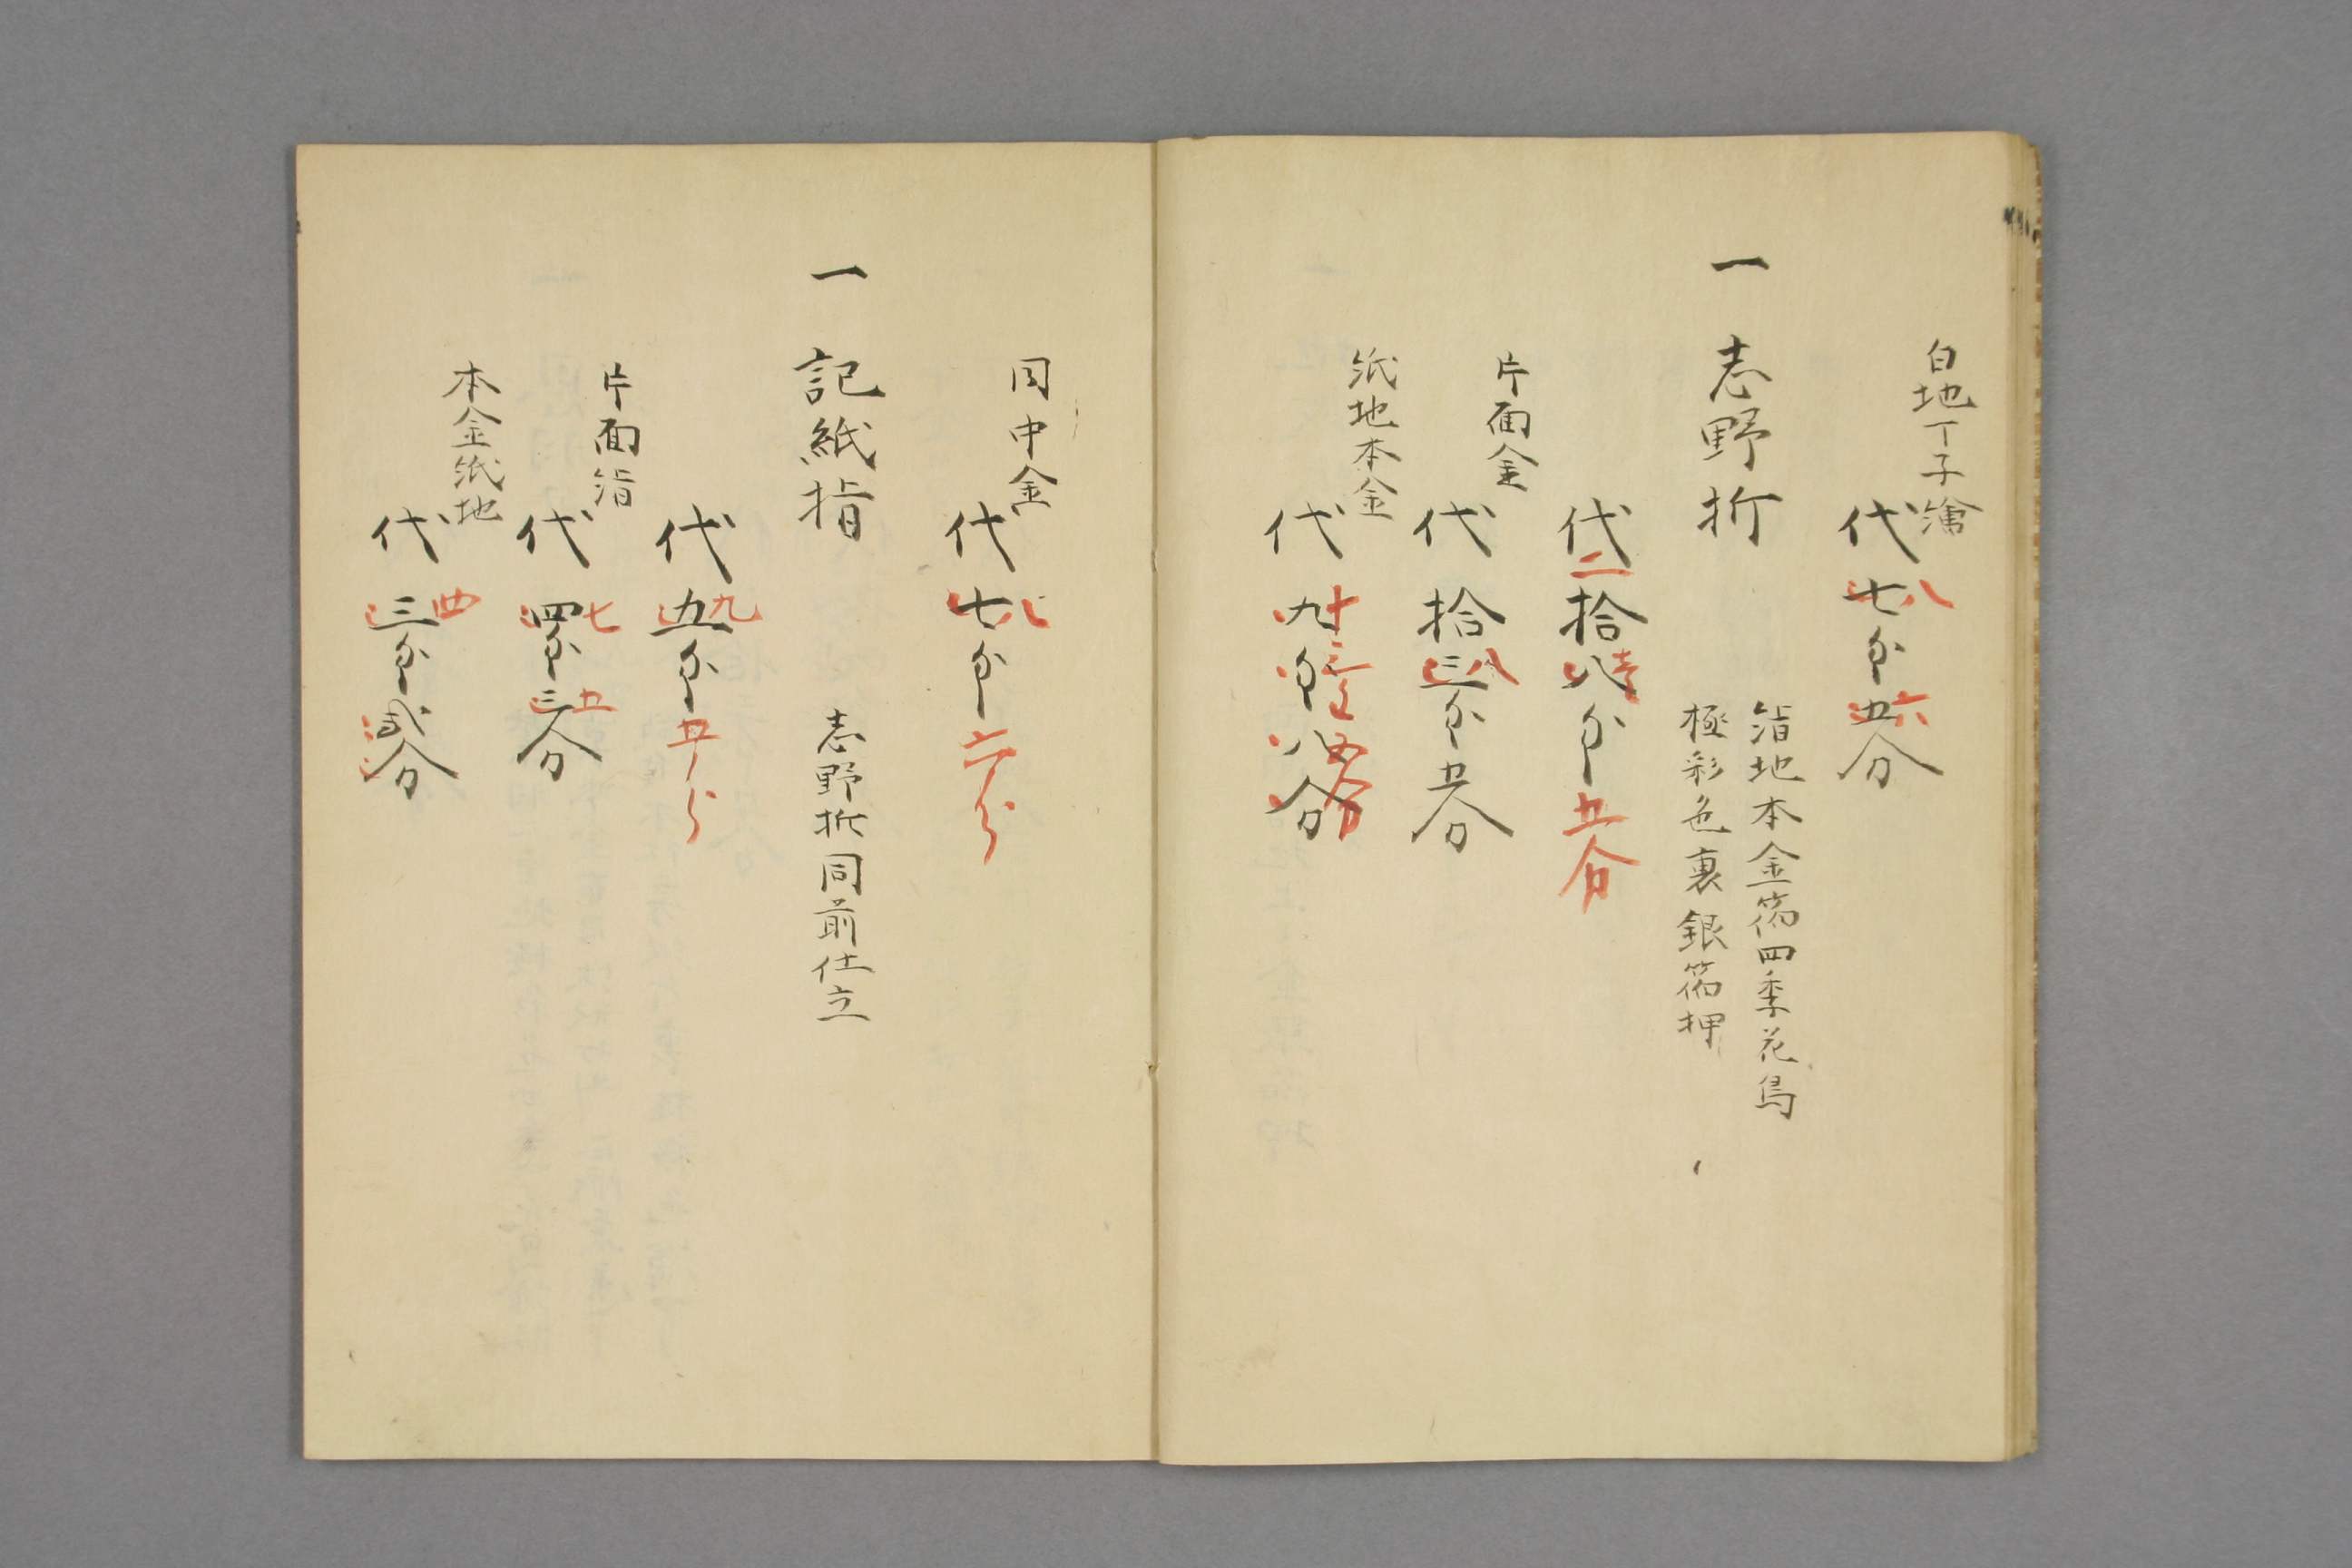 白地丁子繪
代七匁五分
八
六
一 志野折
絹地本金箔四季花鳥
極彩色裏銀箔押
代拾八匁
二
壱
五分
片面金
代拾三匁五分
八
紙地本金
代九匁八分
十三匁
同中金
代七匁
八
六分
一 記紙指
志野折同前仕立
代五匁
九
五分
片面絹
代四匁三分
七
五
本金紙地
代三匁弐分
四